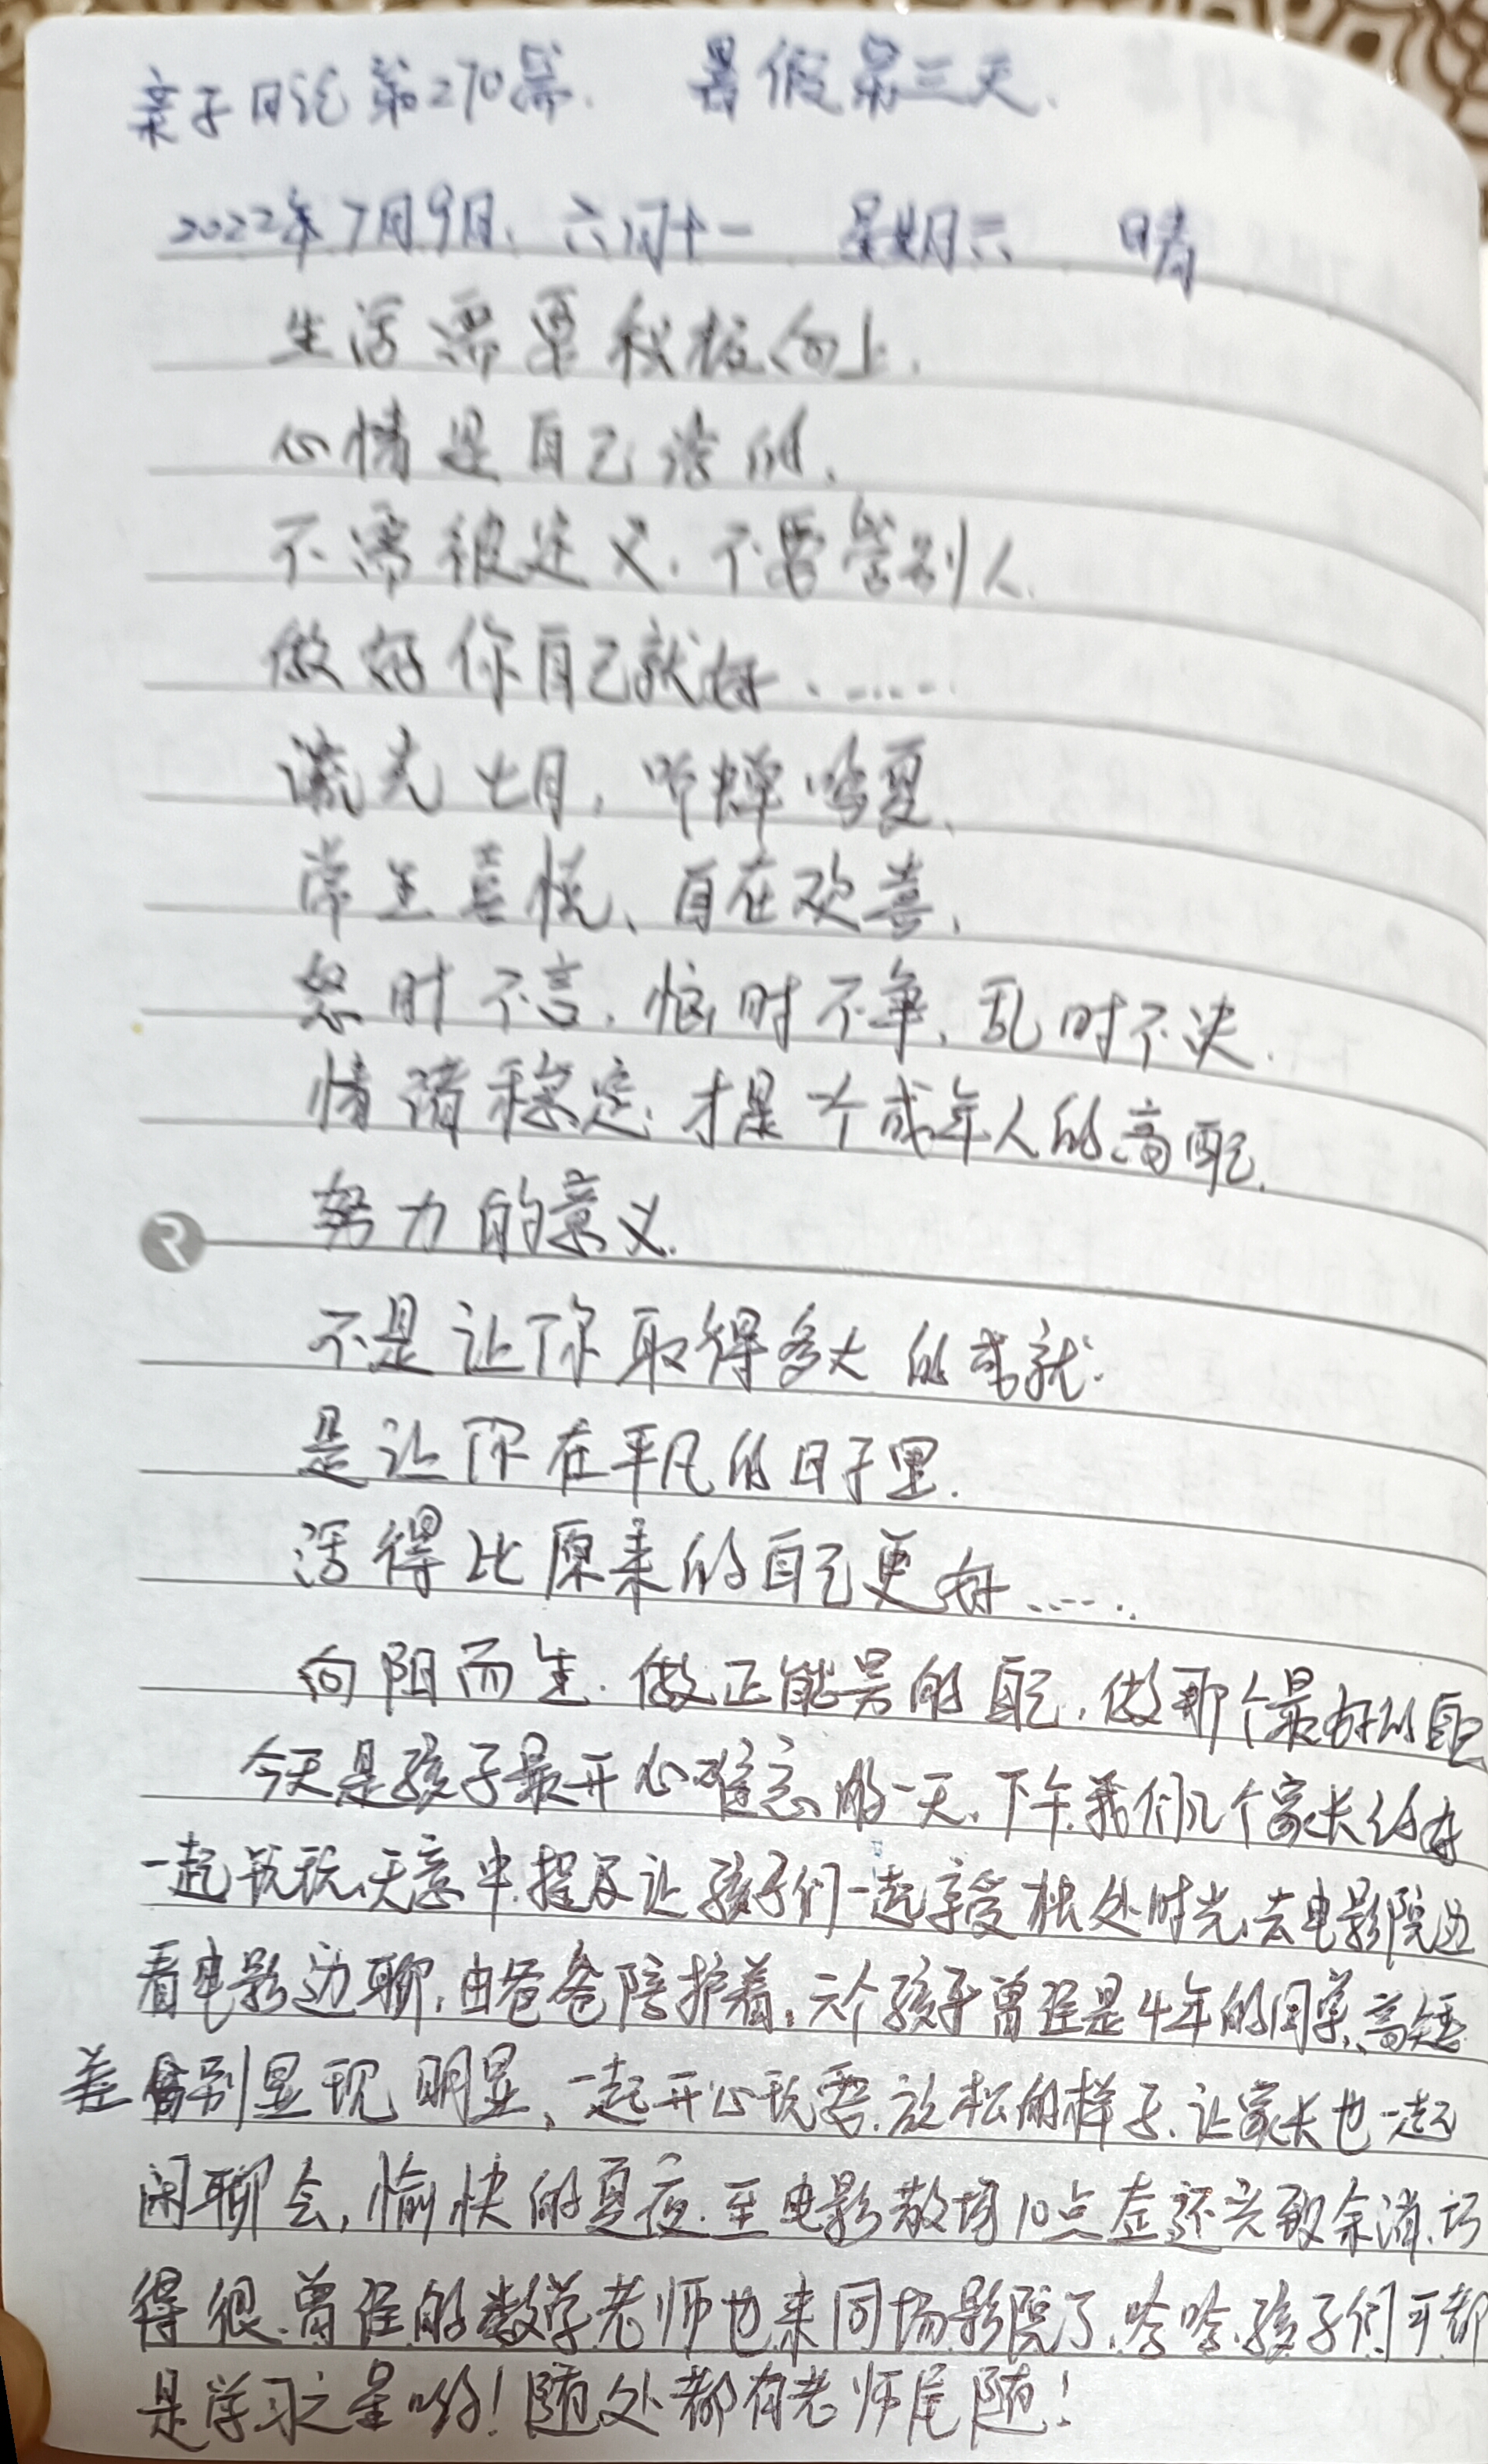 亲子日记第270篇. 暑假第三天.
2022年7月9日. 六月十一 星期六 晴
生活需要积极向上.
心情是自己给的.
不需被定义. 不要管别人.
做好你自己就好......
流光七月, 听蝉鸣夏.
常生喜悦、自在欢喜.
怒时不言, 恼时不争, 乱时不决.
情绪稳定, 才是一个成年人的高配.
努力的意义.
不是让你取得多大的成就.
是让你在平凡的日子里.
活得比原来的自己更好......
向阳而生. 做正能量的自己, 做那个最好的自己
今天是孩子最开心难忘的一天. 下午.我们几个家长约好
一起玩玩、无意中提及让孩子们一起享受独处时光、去电影院边
看电影边聊, 由爸爸陪护着, 六个孩子曾经是4年的同学、高矮
差别显现明显, 一起开心玩耍.放松的样子. 让家长也一起
闲聊会, 愉快的夏夜. 至电影散场10点左还兴致余消.巧
得很.曾经的数学老师也来同场影院了.哈哈.孩子们可都
是学习之星哟! 随处都有老师尾随!